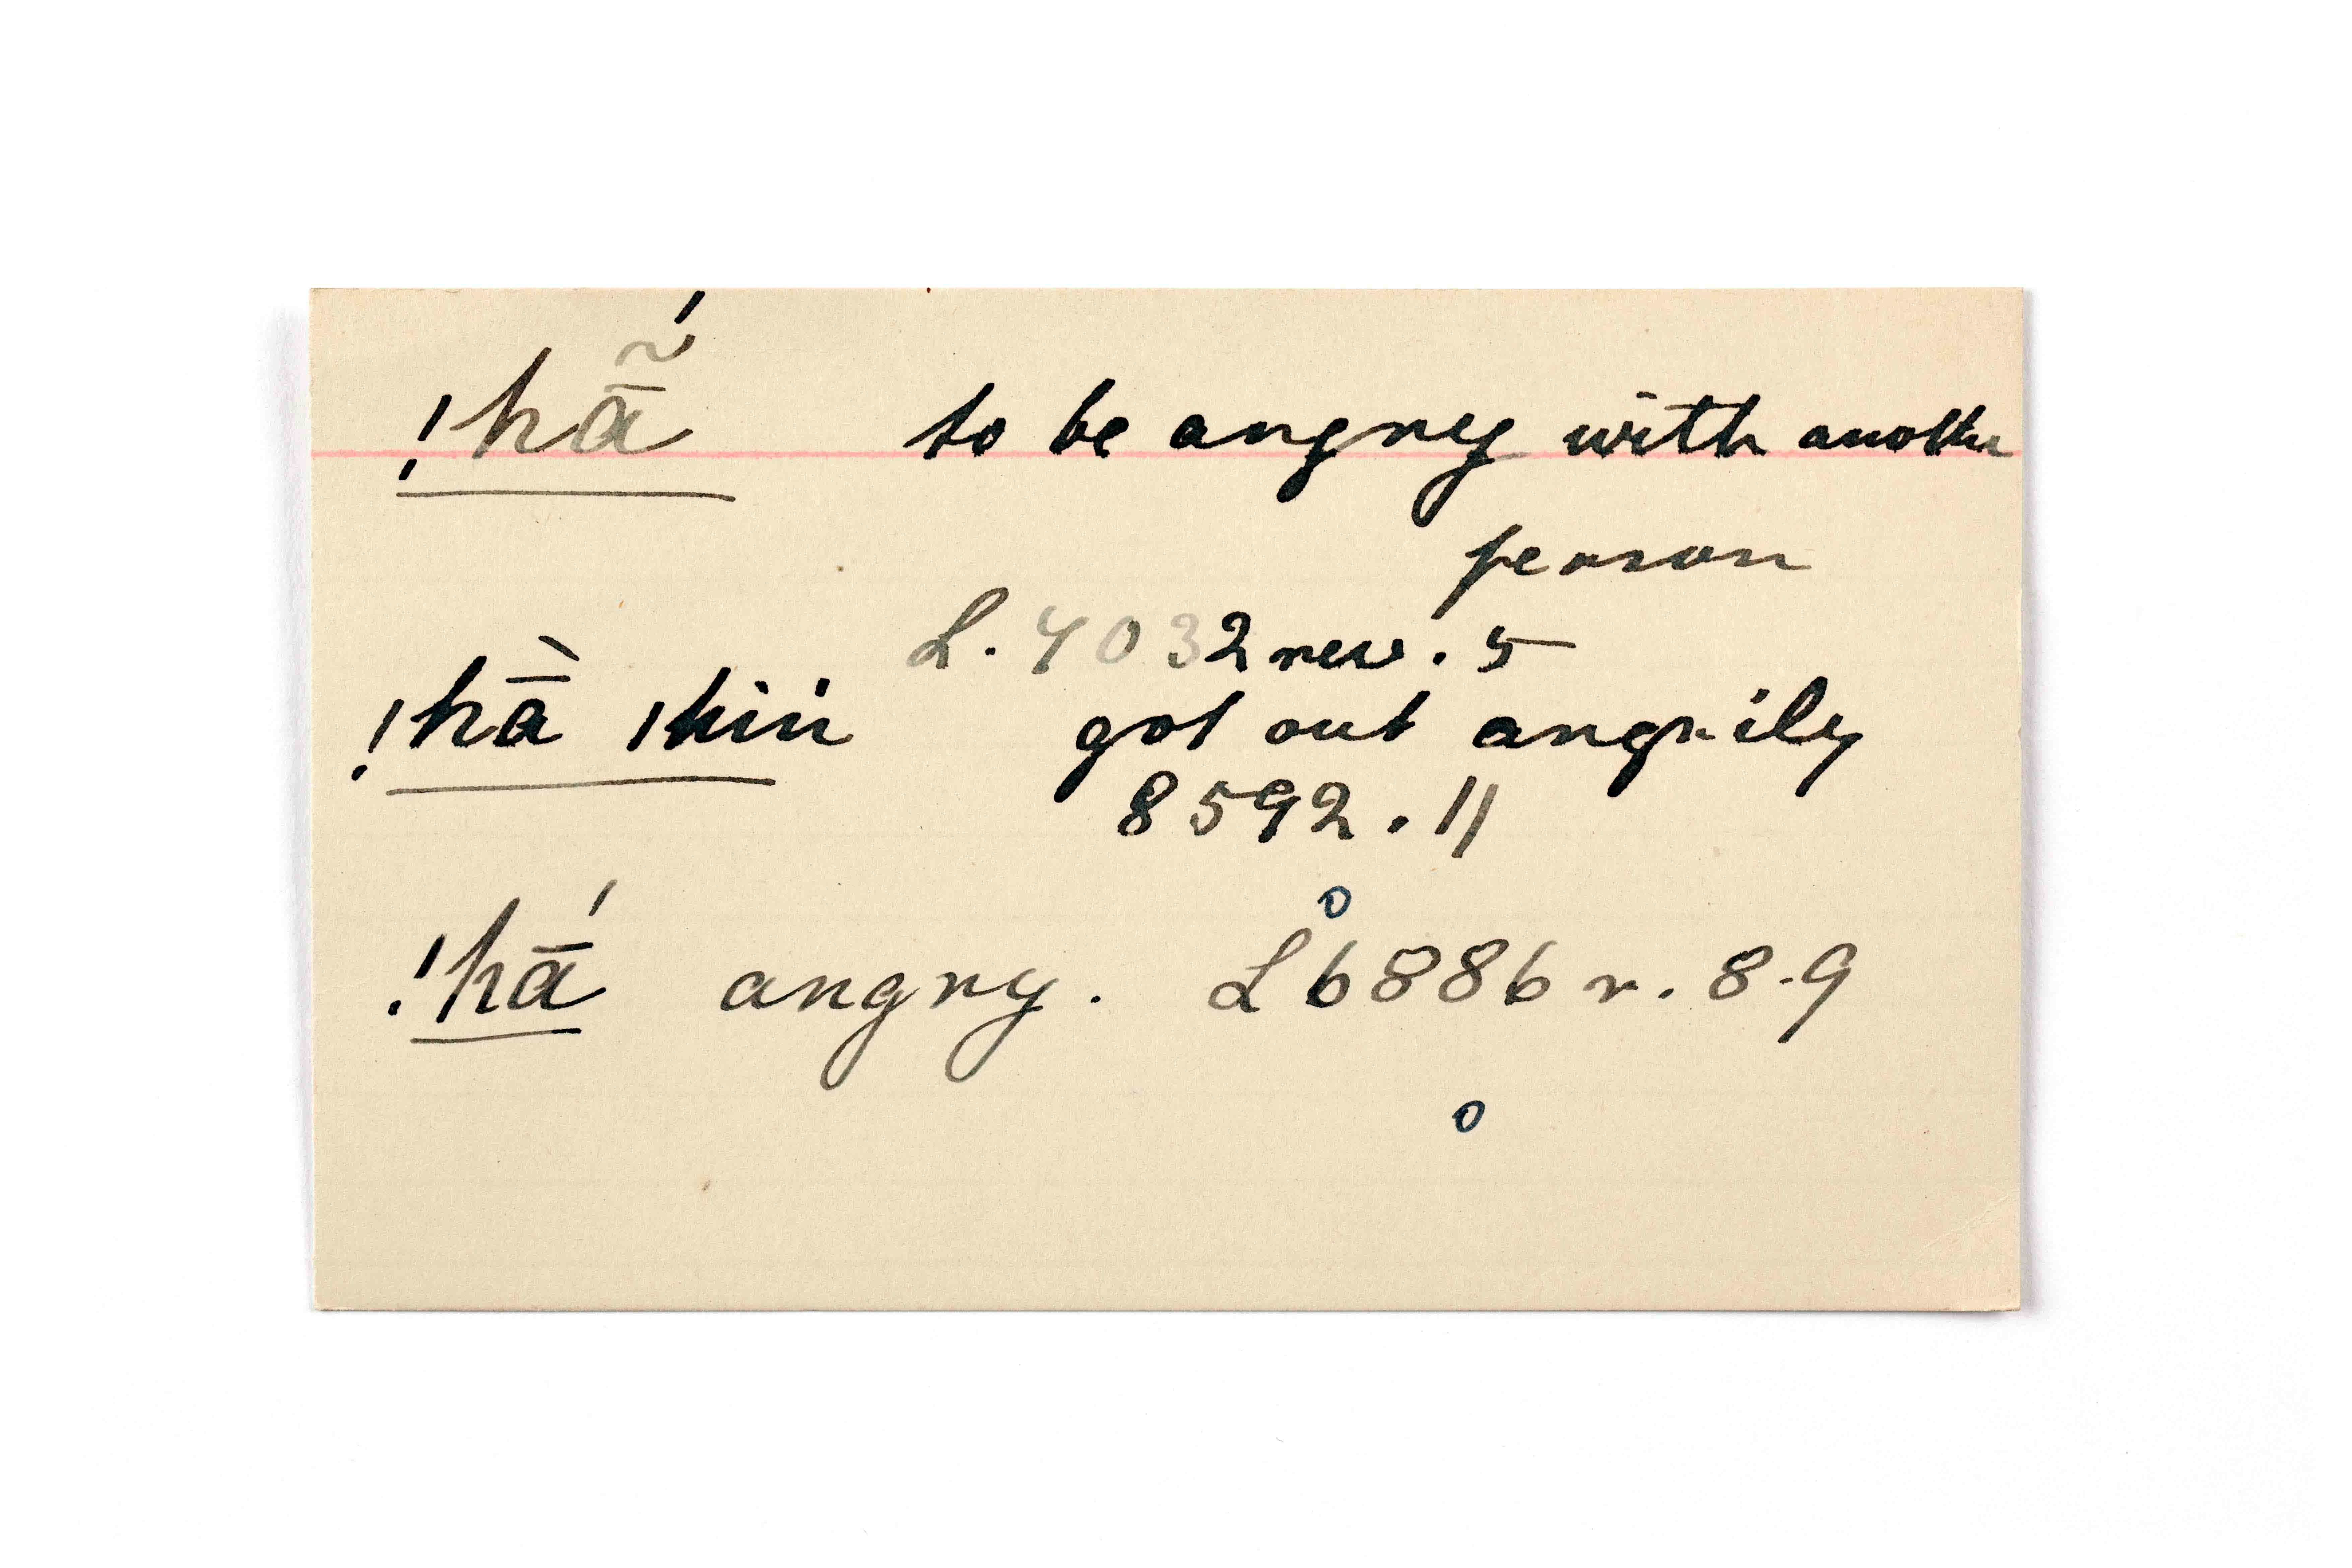 !hā̃́ to be angry with another
person
L. 4032 rev. 5
!hā̀ ǀhin got out angrily
8592. 11
!hā́ angry. L 6886 r. 8-9